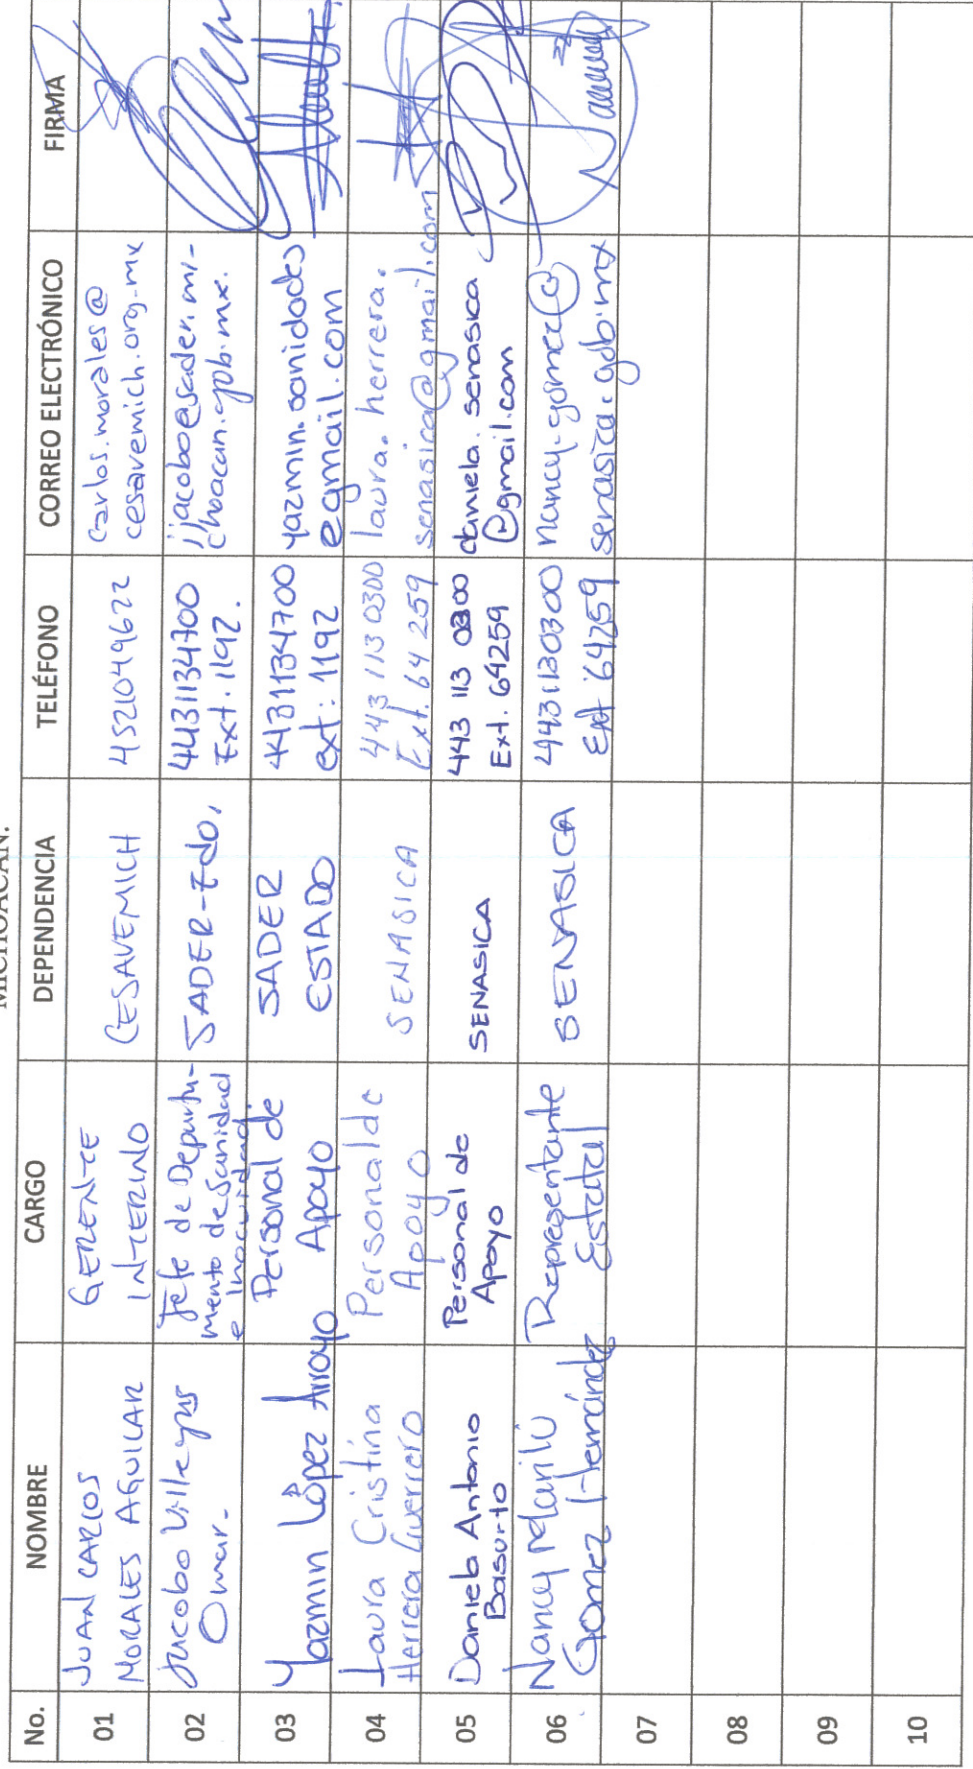 MICHOACÁN.
No. NOMBRE CARGO DEPENDENCIA TELÉFONO CORREO ELECTRÓNICO FIRMA
01
JUAN CARLOS
MORALES AGUILAR
GERENTE
INTERINO
CESAVEMICH
4521049622
carlos.morales@
cesavemich.org.mx
02
Jacobo Villegas
Omar.
Jefe de Departa-
mento de Sanidad
e Inocuidad.
SADER-Edo.
4431134700
Ext. 1192.
jjacobo@sader.mi-
choacan.gob.mx.
03
Yazmin López Arroyo
Personal de
Apoyo
SADER
ESTADO
4431134700
ext: 1192
yazmin.sanidades
@gmail.com
04
Laura Cristina
Herrera Guerrero
Personal de
Apoyo
SENASICA
443 113 0300
Ext. 64 259
laura.herrera.
senasica@gmail.com
05
Daniela Antonio
Basurto
Personal de
Apoyo
SENASICA
443 113 0300
Ext. 64259
daniela.senasica
@gmail.com
06
Nancy
Gomez Hernández
Representante
Estatal
SENASICA
4431130300
Ext 64259
nancy.gomez@
senasica.gob.mx
07
08
09
10